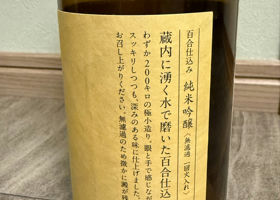 百合仕込み 純米吟醸〈無濾過 一回火入れ〉
蔵内に湧く水で磨いた百合仕込
わずか200キロの極小造り。眼と手で感じなが
スッキリしつつも、深みのある味に仕上げました。
お召し上がりください。無濾過のため微かに澱が残